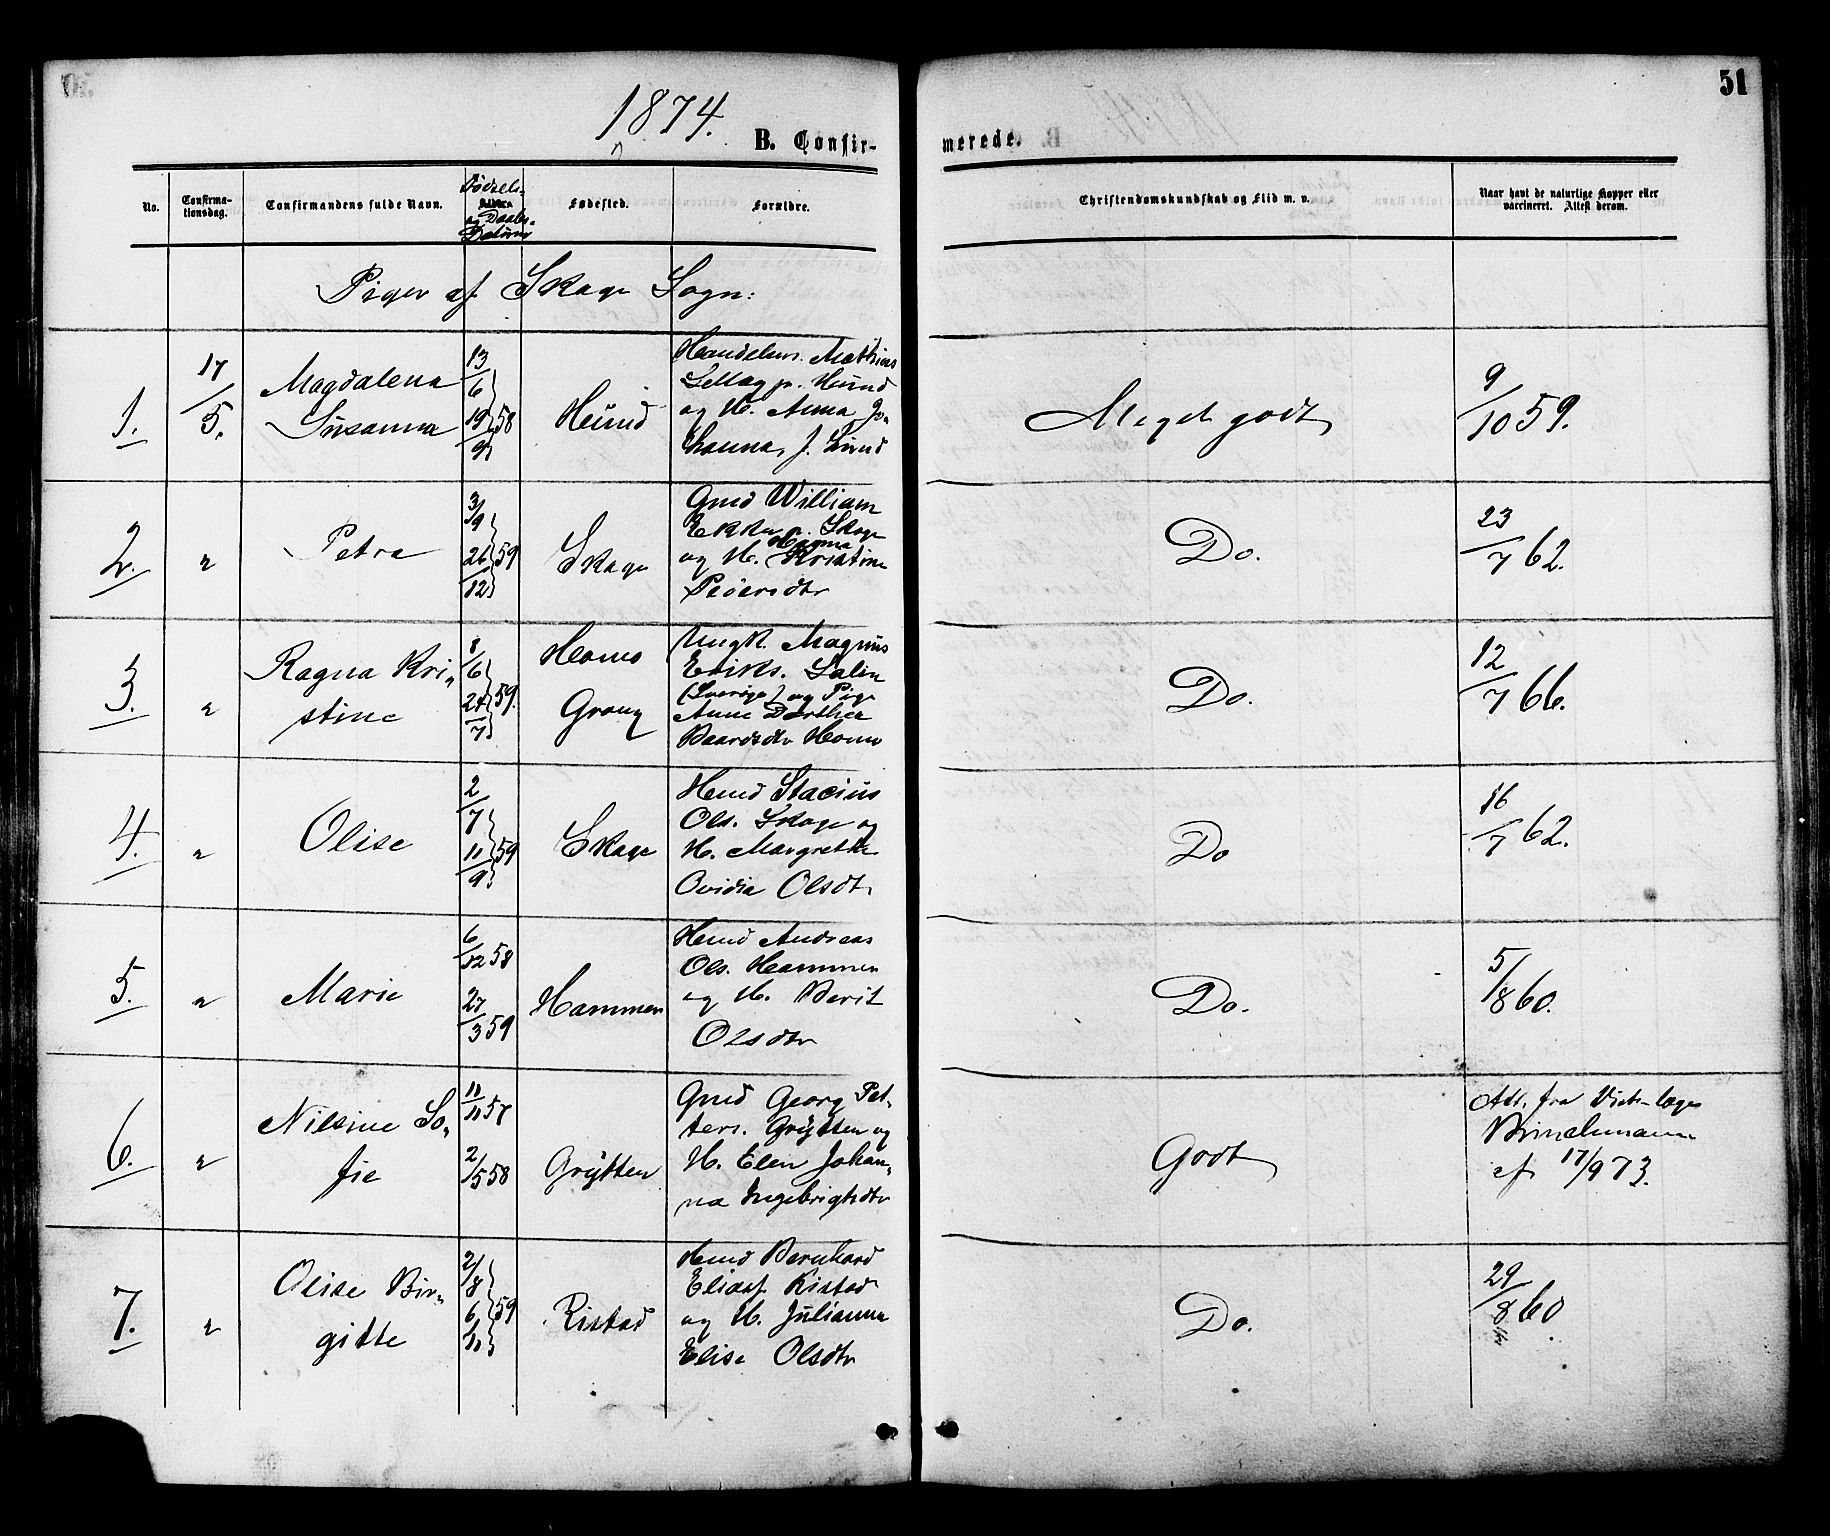 51
1874.
B. Confir-
merede.
No.
Confirma-
tionsdag.
Confirmandens fulde Navn.
Fødsels-
og Daabs-
Datum
Fødested.
Forældre.
Christendomskundskab og Flid m. v.
Naar havt de naturlige Kopper eller
vaccineret. Attest derom.
Piger af Skage Sogn:
1.
17/5.
Magdalena
Susanna
13/6
19/9 58
Hund
Handelsm. Mathias
Sellæg p. Hund
og H. Anna Jo-
hanna, f. Lund
Meget godt
9/10 59.
2.
"
Petra
3/9
26/12 59
Skage
Gmd William
p. Skage
og H. Hagma Kristine
Pedersdtr
Do.
23/7 62.
3.
"
Ragna Kri-
stine
8/6
24/7 59.
Homo
Grong
Ungk. Magnus
Eriks. Salin
(Sverige) og Pige
Anne Dorthea
Baardsdtr Homo
Do.
12/7 66.
4.
"
Olise
2/7
11/9 59
Skage
Hmd Stacius
Ols. Skage og
H. Margrethe
Ovidia Olsdtr
Do
16/7 62.
5.
"
Marie
6/12 58
27/3 59
Hammen
Hmd Andreas
Ols. Hammen
og H. Berit
Olsdtr
Do.
5/8 60.
6.
"
Nilsine So-
fie
11/11 57
2/5 58
Grytten
Gmd Georg Pet-
ters. Grytten og
H. Elen Johan-
na Ingebrigtsdtr
Godt
Att. fra Distr-læge
Brinchmann
af 17/9 73.
7.
"
Olise Bir-
gitte
2/8
6/11 59
Ristad
Hmd Bernhard
Eliasf. Ristad
og H. Julianna
Elise Olsdtr
Do.
29/8 60